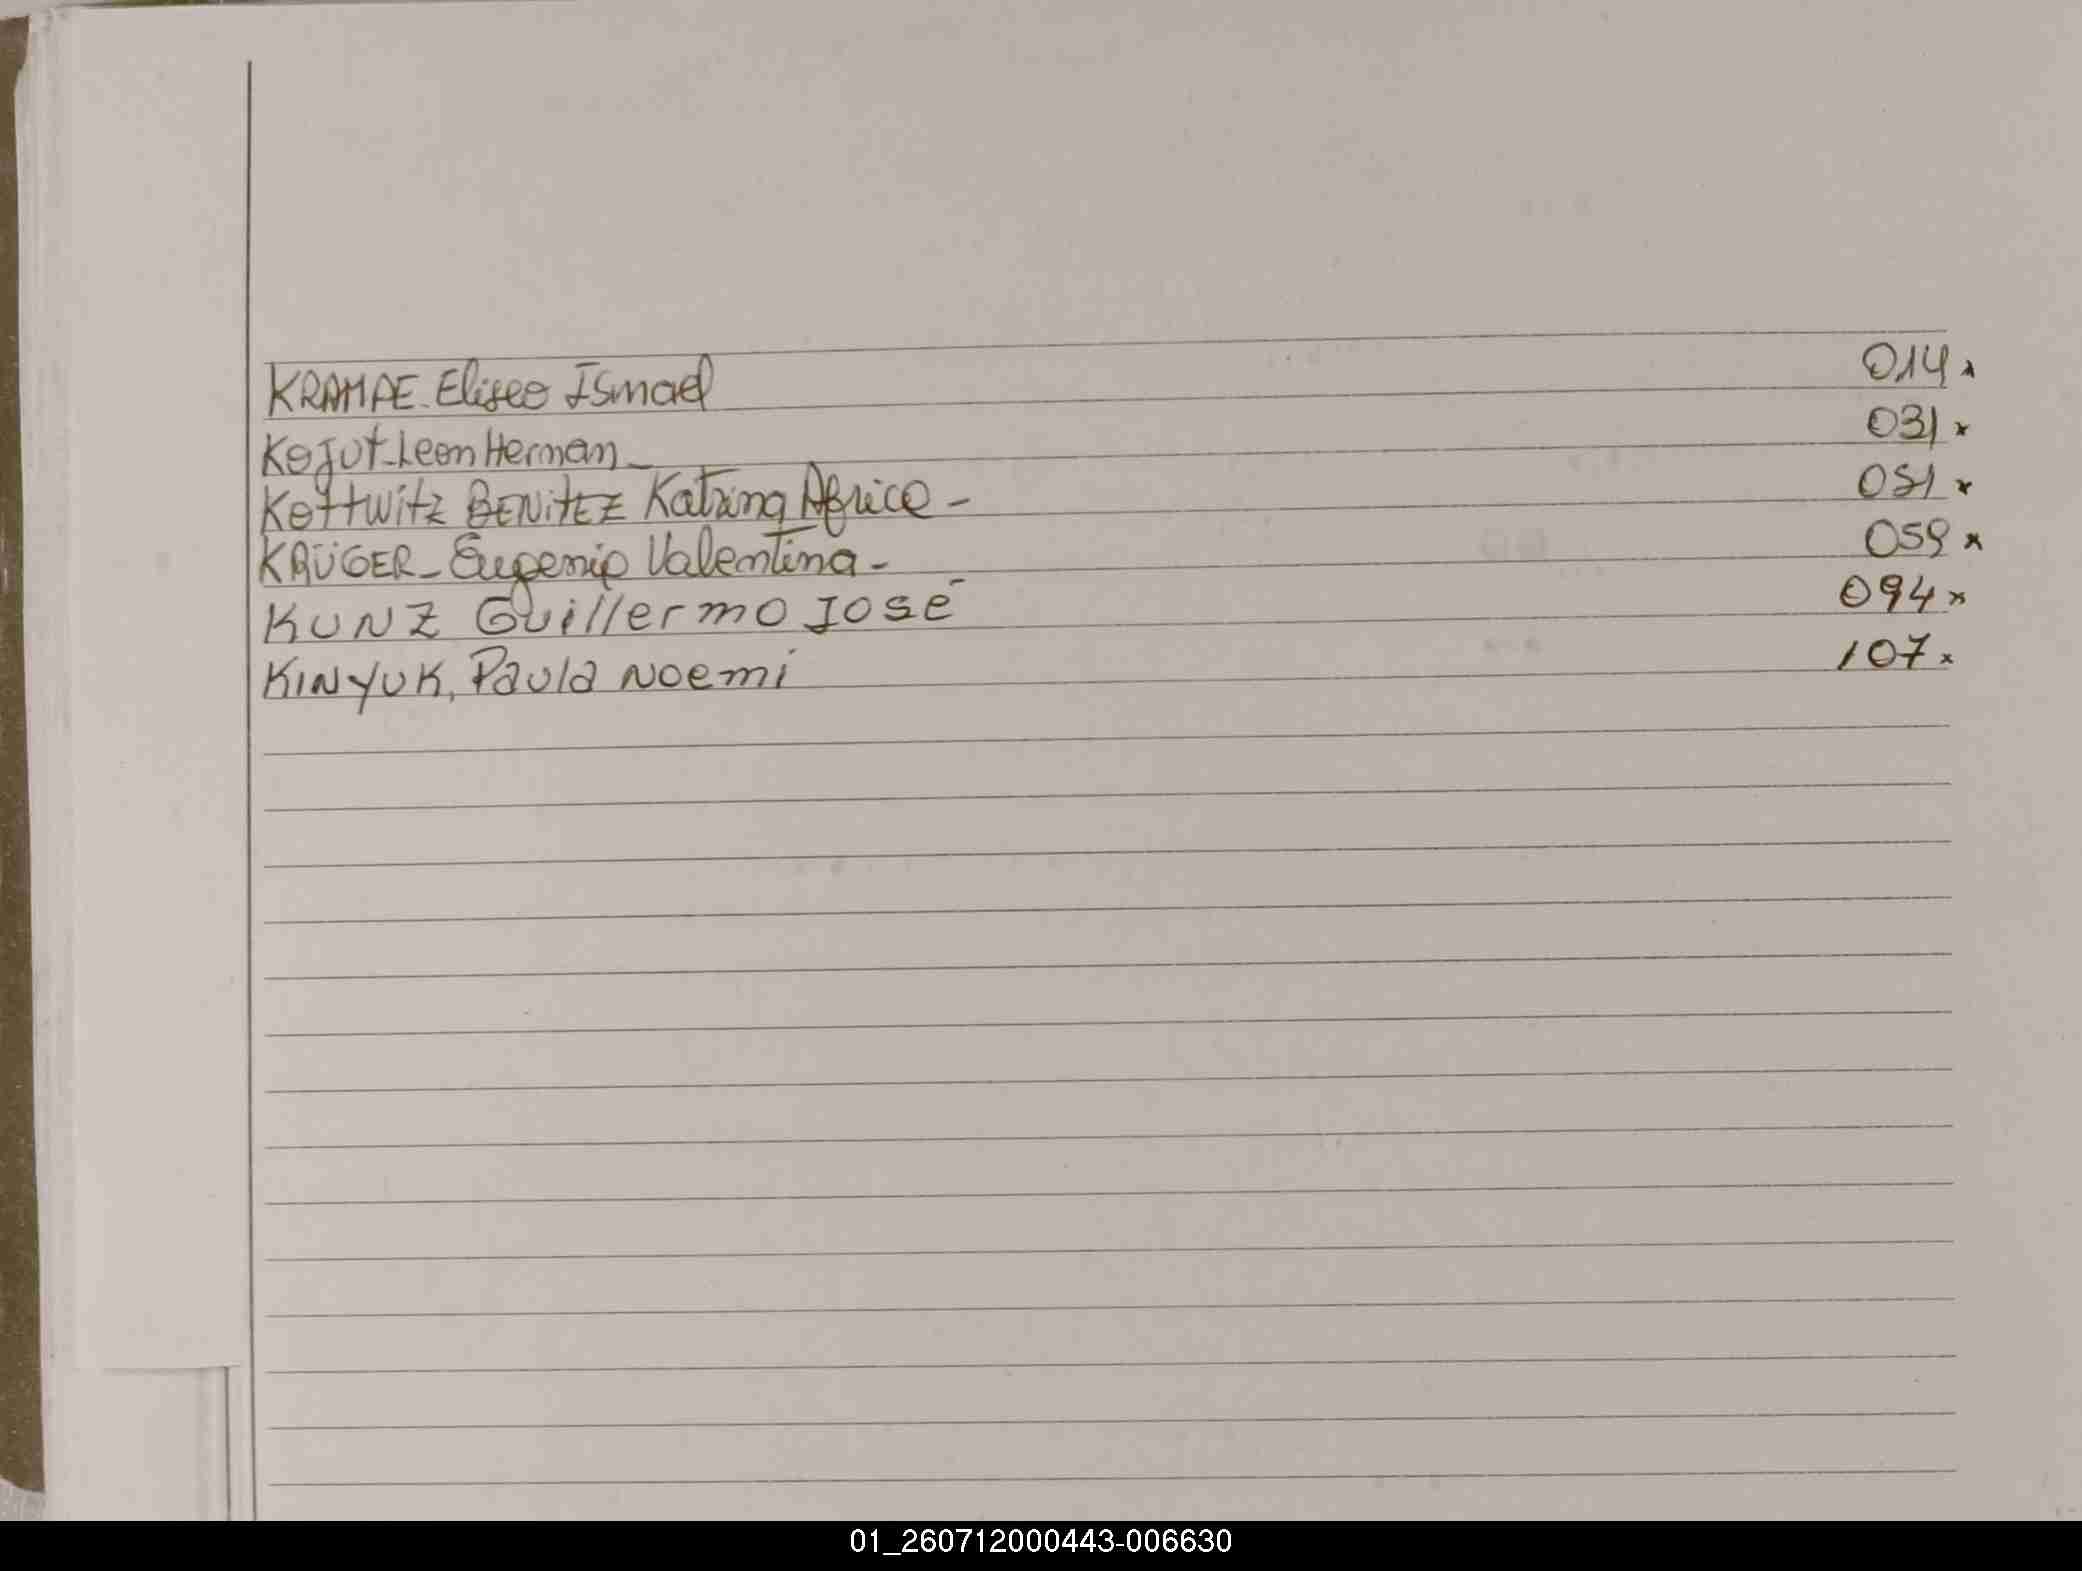 KRAMPE. Eliseo Ismael 014 x
Kojut-Leon Hernan_ 031 x
Kottwitz BENITEZ Katring Africa - 051 x
KRÜGER_ Eugenia Valentina - 059 x
KUNZ Guillermo José - 094 x
KINYUK, Paula Noemi 107 x
01_260712000443-006630